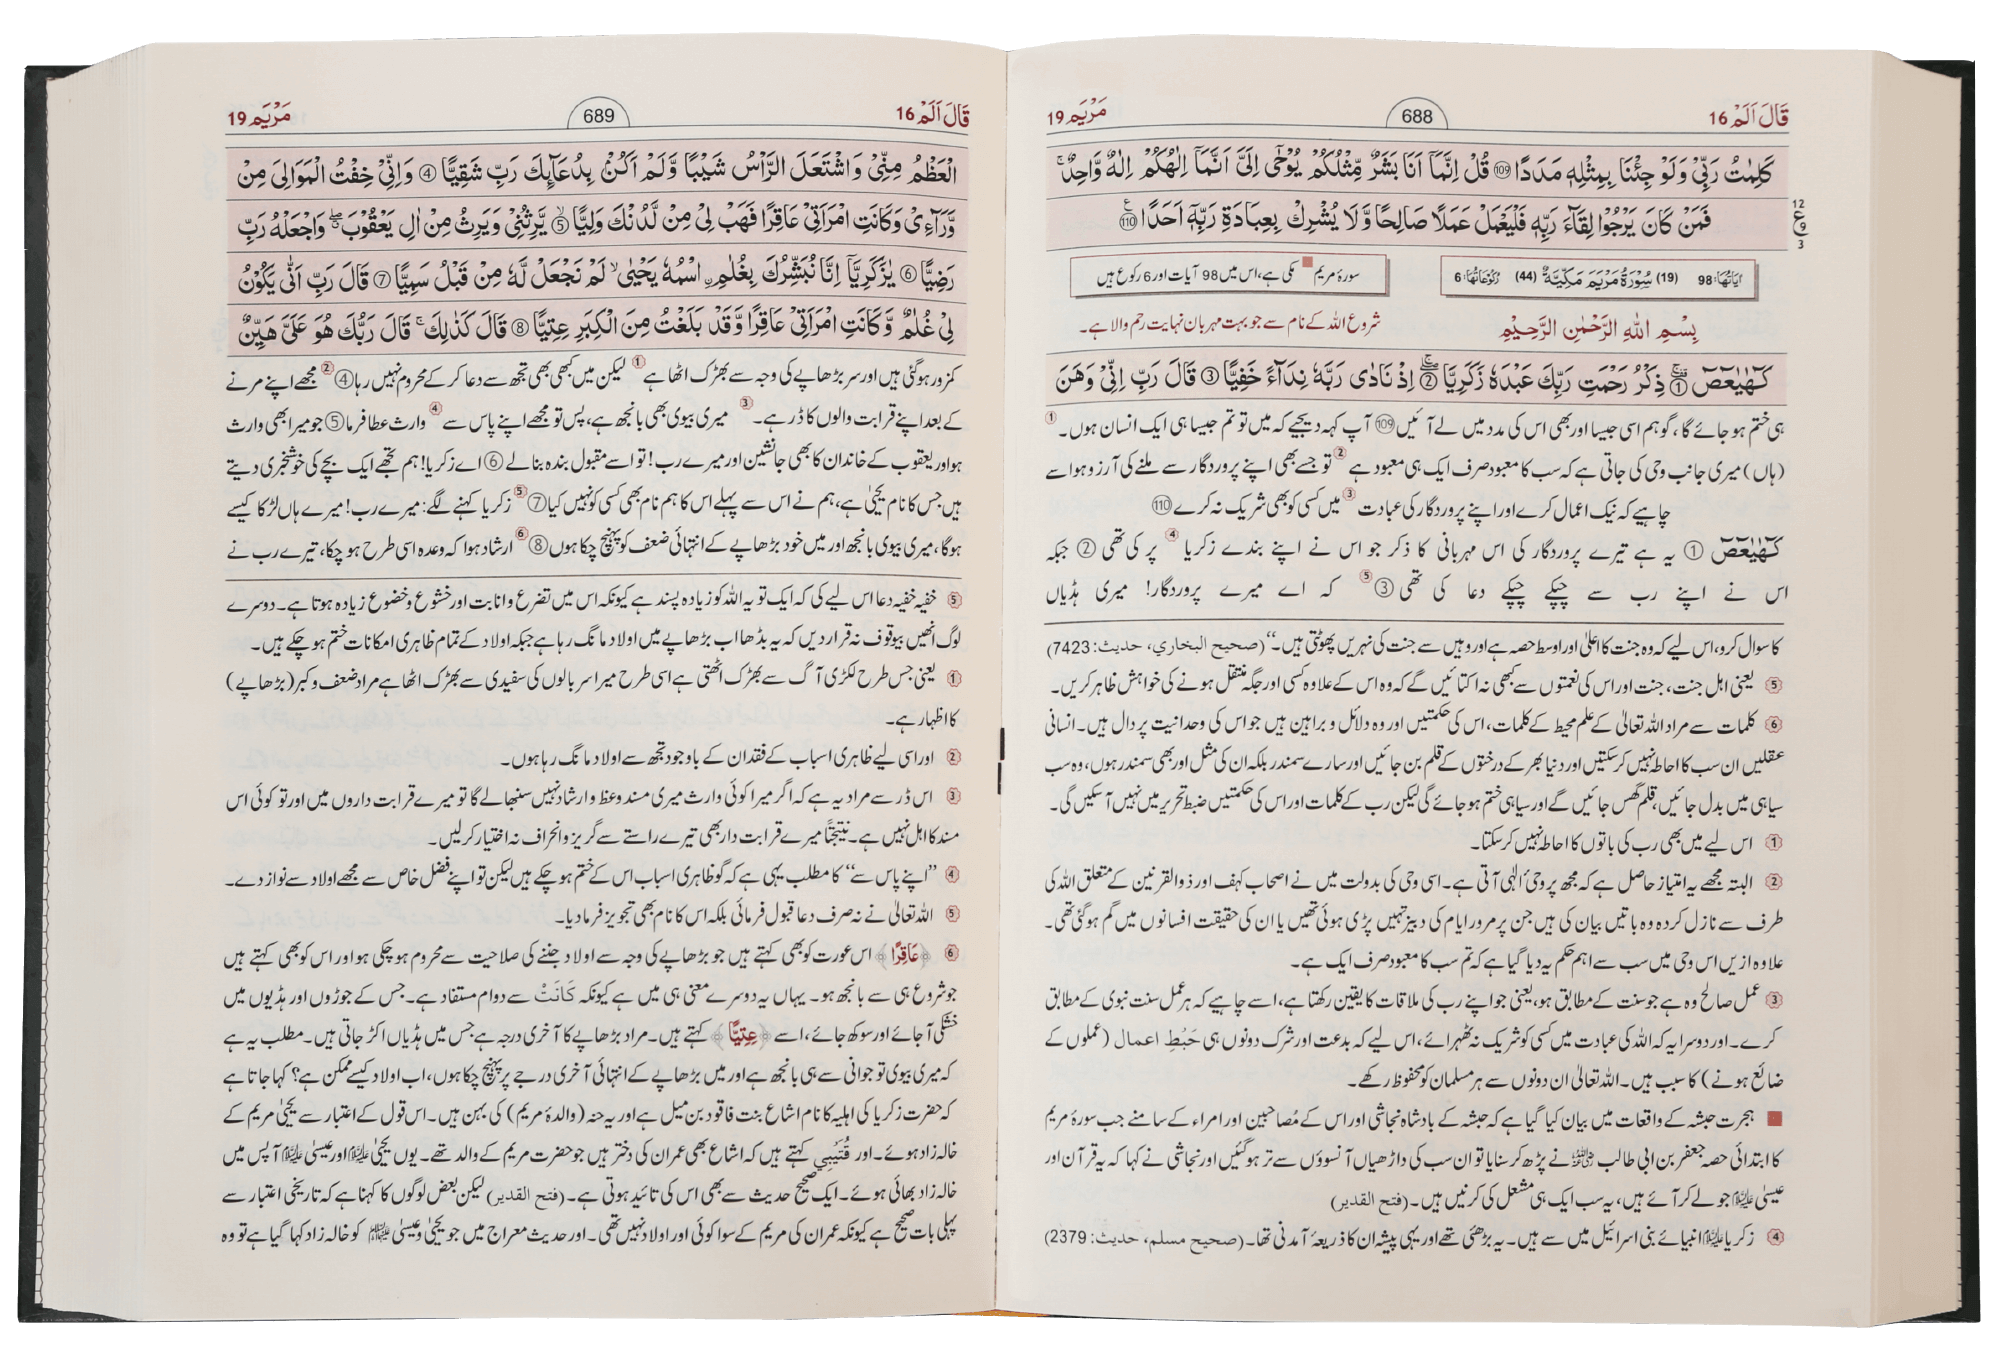 قَالَ اَلَمْ 16
688
مَرْيَم 19
كَلِمٰتُ رَبِّيْ وَلَوْ جِئْنَا بِمِثْلِهٖ مَدَدًا ⑩⁹ قُلْ اِنَّمَآ اَنَا بَشَرٌ مِّثْلُكُمْ يُوْحٰٓى اِلَيَّ اَنَّمَآ اِلٰهُكُمْ اِلٰهٌ وَّاحِدٌ ۚ
فَمَنْ كَانَ يَرْجُوْا لِقَآءَ رَبِّهٖ فَلْيَعْمَلْ عَمَلًا صَالِحًا وَّلَا يُشْرِكْ بِعِبَادَةِ رَبِّهٖٓ اَحَدًا 110
12 ع 9 3
اٰيَاتُهَا: 98 (19) سُوْرَةُ مَرْيَمَ مَكِّيَّةٌ (44) رُكُوْعَاتُهَا: 6
سورۂ مریم مکی ہے، اس میں 98 آیات اور 6 رکوع ہیں
بِسْمِ اللّٰهِ الرَّحْمٰنِ الرَّحِيْمِ
شروع اللہ کے نام سے جو بہت مہربان نہایت رحم والا ہے۔
كٓهٰيٰعٓصٓ ① ذِكْرُ رَحْمَتِ رَبِّكَ عَبْدَهٗ زَكَرِيَّا ② اِذْ نَادٰى رَبَّهٗ نِدَآءً خَفِيًّا ③ قَالَ رَبِّ اِنِّيْ وَهَنَ
ہی ختم ہو جائے گا، گو ہم اسی جیسا اور بھی اس کی مدد میں لے آئیں 109 آپ کہہ دیجیے کہ میں تو تم جیسا ہی ایک انسان ہوں۔ 1
(ہاں) میری جانب وحی کی جاتی ہے کہ سب کا معبود صرف ایک ہی معبود ہے 2 تو جسے بھی اپنے پروردگار سے ملنے کی آرزو ہو اسے
چاہیے کہ نیک اعمال کرے اور اپنے پروردگار کی عبادت 3 میں کسی کو بھی شریک نہ کرے 110
كٓهٰيٰعٓصٓ ① یہ ہے تیرے پروردگار کی اس مہربانی کا ذکر جو اس نے اپنے بندے زکریا 4 پر کی تھی ② جبکہ
اس نے اپنے رب سے چپکے چپکے دعا کی تھی ③ 5 کہ اے میرے پروردگار! میری ہڈیاں
کا سوال کرو، اس لیے کہ وہ جنت کا اعلیٰ اور اوسط حصہ ہے اور وہیں سے جنت کی نہریں پھوٹتی ہیں۔‘‘ (صحيح البخاري، حديث: 7423)
5 یعنی اہل جنت، جنت اور اس کی نعمتوں سے بھی نہ اکتائیں گے کہ وہ اس کے علاوہ کسی اور جگہ منتقل ہونے کی خواہش ظاہر کریں۔
6 کلمات سے مراد اللہ تعالیٰ کے علم محیط کے کلمات، اس کی حکمتیں اور وہ دلائل و براہین ہیں جو اس کی وحدانیت پر دال ہیں۔ انسانی
عقلیں ان سب کا احاطہ نہیں کر سکتیں اور دنیا بھر کے درختوں کے قلم بن جائیں اور سارے سمندر بلکہ ان کی مثل اور بھی سمندر ہوں، وہ سب
سیاہی میں بدل جائیں، قلم گھس جائیں گے اور سیاہی ختم ہو جائے گی لیکن رب کے کلمات اور اس کی حکمتیں ضبط تحریر میں نہیں آ سکیں گی۔
1 اس لیے میں بھی رب کی باتوں کا احاطہ نہیں کر سکتا۔
2 البتہ مجھے یہ امتیاز حاصل ہے کہ مجھ پر وحیٔ الٰہی آتی ہے۔ اسی وحی کی بدولت میں نے اصحاب کہف اور ذوالقرنین کے متعلق اللہ کی
طرف سے نازل کردہ وہ باتیں بیان کی ہیں جن پر مرور ایام کی دبیز تہیں پڑی ہوئی تھیں یا ان کی حقیقت افسانوں میں گم ہو گئی تھی۔
علاوہ ازیں اس وحی میں سب سے اہم حکم یہ دیا گیا ہے کہ تم سب کا معبود صرف ایک ہے۔
3 عمل صالح وہ ہے جو سنت کے مطابق ہو، یعنی جو اپنے رب کی ملاقات کا یقین رکھتا ہے، اسے چاہیے کہ ہر عمل سنت نبوی کے مطابق
کرے۔ اور دوسرا یہ کہ اللہ کی عبادت میں کسی کو شریک نہ ٹھہرائے، اس لیے کہ بدعت اور شرک دونوں ہی حَبْطِ اعمال (عملوں کے
ضائع ہونے) کا سبب ہیں۔ اللہ تعالیٰ ان دونوں سے ہر مسلمان کو محفوظ رکھے۔
ہجرت حبشہ کے واقعات میں بیان کیا گیا ہے کہ حبشہ کے بادشاہ نجاشی اور اس کے مُصاحبین اور امراء کے سامنے جب سورۂ مریم
کا ابتدائی حصہ جعفر بن ابی طالب ؓ نے پڑھ کر سنایا تو ان سب کی داڑھیاں آنسوؤں سے تر ہو گئیں اور نجاشی نے کہا کہ یہ قرآن اور
عیسیٰ علیہ السلام جو لے کر آئے ہیں، یہ سب ایک ہی مشعل کی کرنیں ہیں۔ (فتح القدير)
4 زکریا علیہ السلام انبیائے بنی اسرائیل میں سے ہیں۔ یہ بڑھئی تھے اور یہی پیشہ ان کا ذریعۂ آمدنی تھا۔ (صحيح مسلم، حديث: 2379)
قَالَ اَلَمْ 16
689
مَرْيَم 19
الْعَظْمُ مِنِّيْ وَاشْتَعَلَ الرَّاْسُ شَيْبًا وَّلَمْ اَكُنْۢ بِدُعَآىِٕكَ رَبِّ شَقِيًّا ④ وَاِنِّيْ خِفْتُ الْمَوَالِيَ مِنْ
وَّرَآءِيْ وَكَانَتِ امْرَاَتِيْ عَاقِرًا فَهَبْ لِيْ مِنْ لَّدُنْكَ وَلِيًّا ⑤ يَّرِثُنِيْ وَيَرِثُ مِنْ اٰلِ يَعْقُوْبَ ۖ وَاجْعَلْهُ رَبِّ
رَضِيًّا ⑥ يٰزَكَرِيَّآ اِنَّا نُبَشِّرُكَ بِغُلٰمِ ِۨاسْمُهٗ يَحْيٰى ۙ لَمْ نَجْعَلْ لَّهٗ مِنْ قَبْلُ سَمِيًّا ⑦ قَالَ رَبِّ اَنّٰى يَكُوْنُ
لِيْ غُلٰمٌ وَّكَانَتِ امْرَاَتِيْ عَاقِرًا وَّقَدْ بَلَغْتُ مِنَ الْكِبَرِ عِتِيًّا ⑧ قَالَ كَذٰلِكَ ۚ قَالَ رَبُّكَ هُوَ عَلَيَّ هَيِّنٌ
کمزور ہو گئی ہیں اور سر بڑھاپے کی وجہ سے بھڑک اٹھا ہے 1 لیکن میں کبھی بھی تجھ سے دعا کر کے محروم نہیں رہا ④ 2 مجھے اپنے مرنے
کے بعد اپنے قرابت والوں کا ڈر ہے۔ 3 میری بیوی بھی بانجھ ہے، پس تو مجھے اپنے پاس سے 4 وارث عطا فرما ⑤ جو میرا بھی وارث
ہو اور یعقوب کے خاندان کا بھی جانشین اور میرے رب! تو اسے مقبول بندہ بنا لے ⑥ اے زکریا! ہم تجھے ایک بچے کی خوشخبری دیتے
ہیں جس کا نام یحییٰ ہے، ہم نے اس سے پہلے اس کا ہم نام بھی کسی کو نہیں کیا ⑦ 5 زکریا کہنے لگے: میرے رب! میرے ہاں لڑکا کیسے
ہوگا، میری بیوی بانجھ اور میں خود بڑھاپے کے انتہائی ضعف کو پہنچ چکا ہوں ⑧ 6 ارشاد ہوا کہ وعدہ اسی طرح ہو چکا، تیرے رب نے
5 خفیہ خفیہ دعا اس لیے کی کہ ایک تو یہ اللہ کو زیادہ پسند ہے کیونکہ اس میں تضرع و انابت اور خشوع و خضوع زیادہ ہوتا ہے۔ دوسرے
لوگ انھیں بیوقوف نہ قرار دیں کہ یہ بڈھا اب بڑھاپے میں اولاد مانگ رہا ہے جبکہ اولاد کے تمام ظاہری امکانات ختم ہو چکے ہیں۔
1 یعنی جس طرح لکڑی آگ سے بھڑک اٹھتی ہے اسی طرح میرا سر بالوں کی سفیدی سے بھڑک اٹھا ہے مراد ضعف و کبر (بڑھاپے)
کا اظہار ہے۔
2 اور اسی لیے ظاہری اسباب کے فقدان کے باوجود تجھ سے اولاد مانگ رہا ہوں۔
3 اس ڈر سے مراد یہ ہے کہ اگر میرا کوئی وارث میری مسند وعظ و ارشاد نہیں سنبھالے گا تو میرے قرابت داروں میں اور تو کوئی اس
مسند کا اہل نہیں ہے۔ نتیجتاً میرے قرابت دار بھی تیرے راستے سے گریز و انحراف نہ اختیار کر لیں۔
4 ’’اپنے پاس سے‘‘ کا مطلب یہی ہے کہ گو ظاہری اسباب اس کے ختم ہو چکے ہیں لیکن تو اپنے فضل خاص سے مجھے اولاد سے نواز دے۔
5 اللہ تعالیٰ نے نہ صرف دعا قبول فرمائی بلکہ اس کا نام بھی تجویز فرما دیا۔
6 ﴿عَاقِرًا﴾ اس عورت کو بھی کہتے ہیں جو بڑھاپے کی وجہ سے اولاد جننے کی صلاحیت سے محروم ہو چکی ہو اور اس کو بھی کہتے ہیں
جو شروع ہی سے بانجھ ہو۔ یہاں یہ دوسرے معنی ہی میں ہے کیونکہ كَانَتْ سے دوام مستفاد ہے۔ جس کے جوڑوں اور ہڈیوں میں
خشکی آ جائے اور سوکھ جائے، اسے ﴿عِتِيًّا﴾ کہتے ہیں۔ مراد بڑھاپے کا آخری درجہ ہے جس میں ہڈیاں اکڑ جاتی ہیں۔ مطلب یہ ہے
کہ میری بیوی تو جوانی سے ہی بانجھ ہے اور میں بڑھاپے کے انتہائی آخری درجے پر پہنچ چکا ہوں، اب اولاد کیسے ممکن ہے؟ کہا جاتا ہے
کہ حضرت زکریا کی اہلیہ کا نام اشاع بنت فاقود بن میل ہے اور یہ حنہ (والدۂ مریم) کی بہن ہیں۔ اس قول کے اعتبار سے یحییٰ مریم کے
خالہ زاد ہوئے۔ اور قُتَیْبِي کہتے ہیں کہ اشاع بھی عمران کی دختر ہیں جو حضرت مریم کے والد تھے۔ یوں یحییٰ علیہ السلام اور عیسیٰ علیہ السلام آپس میں
خالہ زاد بھائی ہوئے۔ ایک صحیح حدیث سے بھی اس کی تائید ہوتی ہے۔ (فتح القدير) لیکن بعض لوگوں کا کہنا ہے کہ تاریخی اعتبار سے
پہلی بات صحیح ہے کیونکہ عمران کی مریم کے سوا کوئی اور اولاد نہیں تھی۔ اور حدیث معراج میں جو یحییٰ و عیسیٰ علیہما السلام کو خالہ زاد کہا گیا ہے تو وہ